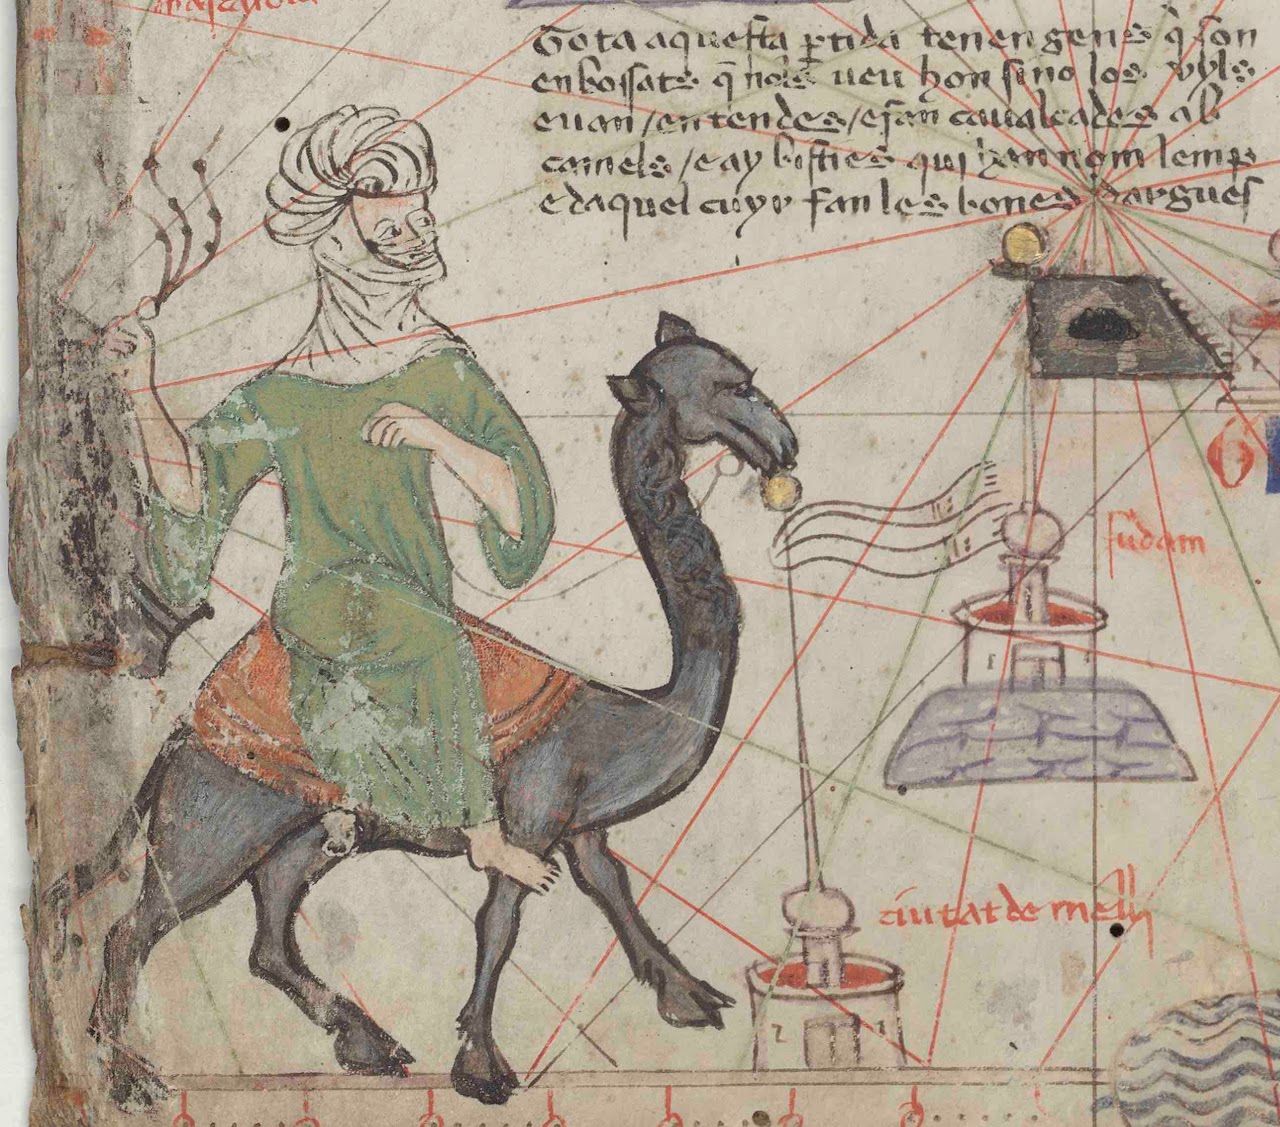 Tota aquesta ꝑtida tenen gens q̃ son
enbossats q̃ nols ueu hom sino los uyls
euan / en tendes / efan caualcades ab
camels / e ay besties qui han nom lemp
e daquel cuyr fan les bones dargues
sudam
ciutat de melly